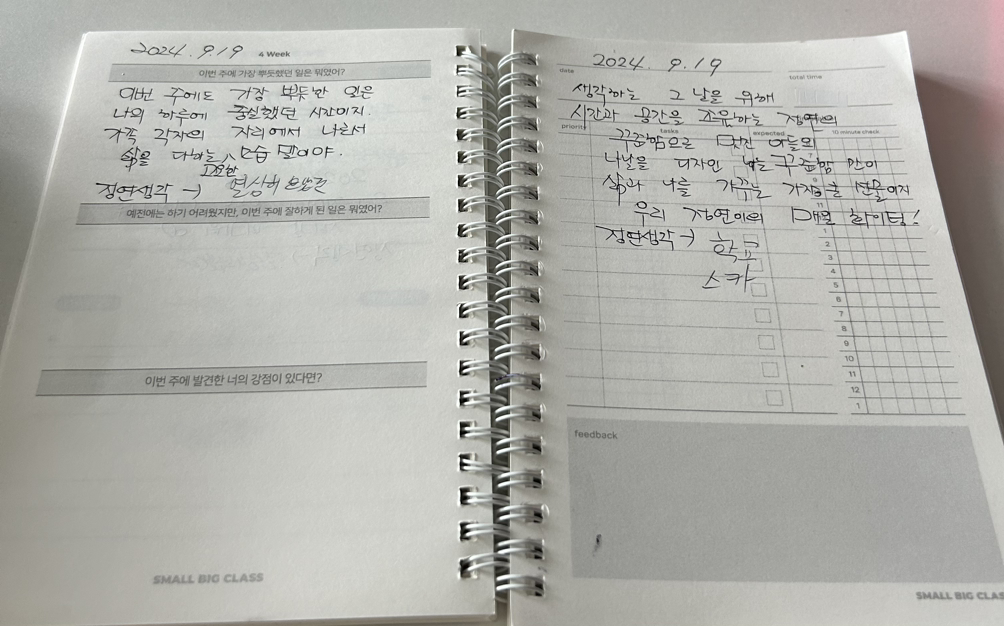 2024. 9. 19
4 Week
이번 주에 가장 뿌듯했던 일은 뭐였어?
이번 주에도 가장 뿌듯한 일은
나의 하루에 충실했던 시간이지.
가족 각자의 자리에서 나로서
삶을 다하는 모습 말이야.
고요한
정연생각 →
예전에는 하기 어려웠지만, 이번 주에 잘하게 된 일은 뭐였어?
이번 주에 발견한 너의 강점이 있다면?
SMALL BIG CLASS
2024. 9. 19
date
total time
생각하는 그 날을 위해
시간과 공간을 조율하는 정연의
priority tasks expected 10 minute check
꾸준함으로 멋진 아들의
나날을 디자인 해 꾸준함 만이
삶과 나를 가꾸는 가장 큰 선물이지
우리 정연이의 매일 화이팅!
정연생각 → 학교
스카
11
1
2
3
4
5
6
7
8
9
10
11
12
1
feedback
SMALL BIG CLAS